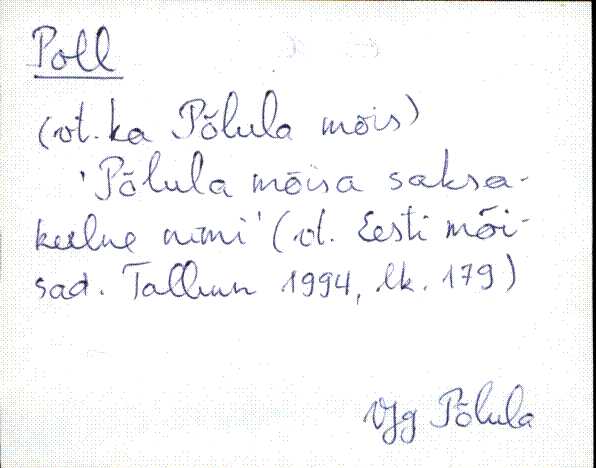 Poll
(vt. ka Põlula mõis)
'Põlula mõisa saksa-
keelne nimi' (vt. Eesti mõi-
sad. Tallinn 1994, lk. 179)
VJg Põlula